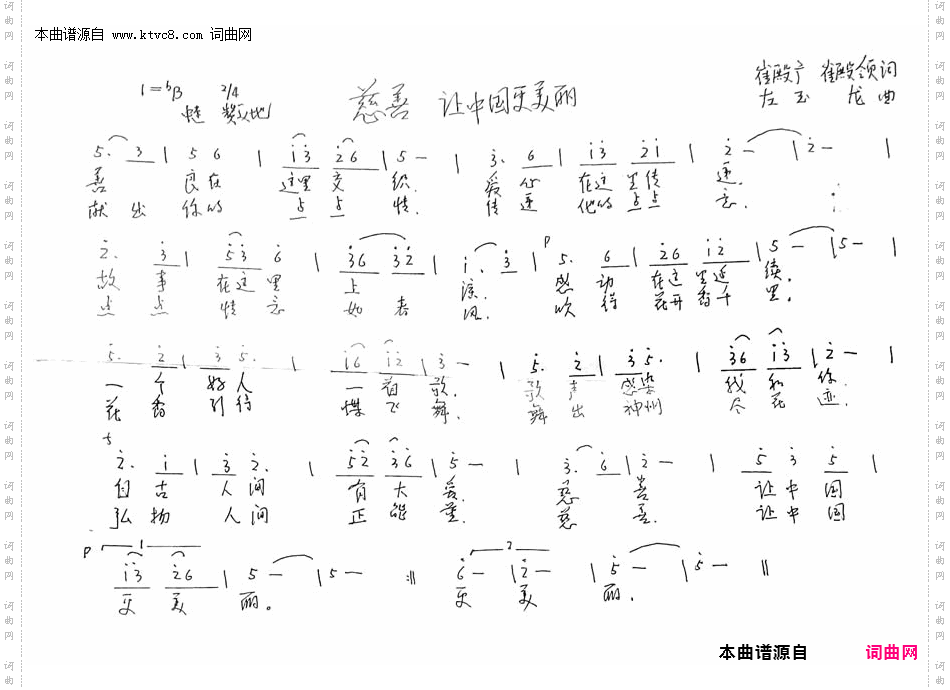 本曲谱源自 www.ktvc8.com 词曲网
慈善 让中国更美丽
1=♭B 2/4
赞美地
崔殿 崔殿领词
左玉龙曲
5. 3 | 5 6 | i3 26 | 5 - | 3. 6 | i3 2i | 2 - | 2 - |
善良在这里交织. 爱心在这里传递.
献出你的点点情. 传递他的点点意.
2. 3 | 53 6 | 36 32 | i. 3 | 5. 6 | 26 i2 | 5 - | 5 - |
故事在这里上演. 感动在这里延续.
点点情意如春风. 吹得花开香千里.
5. 2 | 3 5. | i6 i2 | 3 - | 5. 2 | 3 5. | 36 i3 | 2 - |
一个好人一首歌. 歌声感染我和你.
花香引得蝶飞舞. 舞出神州尽花迹.
2. i | 3 2. | 52 36 | 5 - | 3. 6 | 2 - | 5 3 5 |
自古人间有大爱. 慈善让中国
弘扬人间正能量. 慈善让中国
1
i3 26 | 5 - | 5 - :||
更美丽。
2
6 - | 2 - | 5 - | 5 - ||
更美丽.
本曲谱源自 词曲网
词曲网